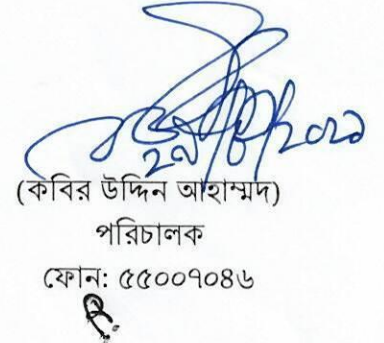 (কবির উদ্দিন আহাম্মদ)
পরিচালক
ফোন: ৫৫০০৭০৪৬